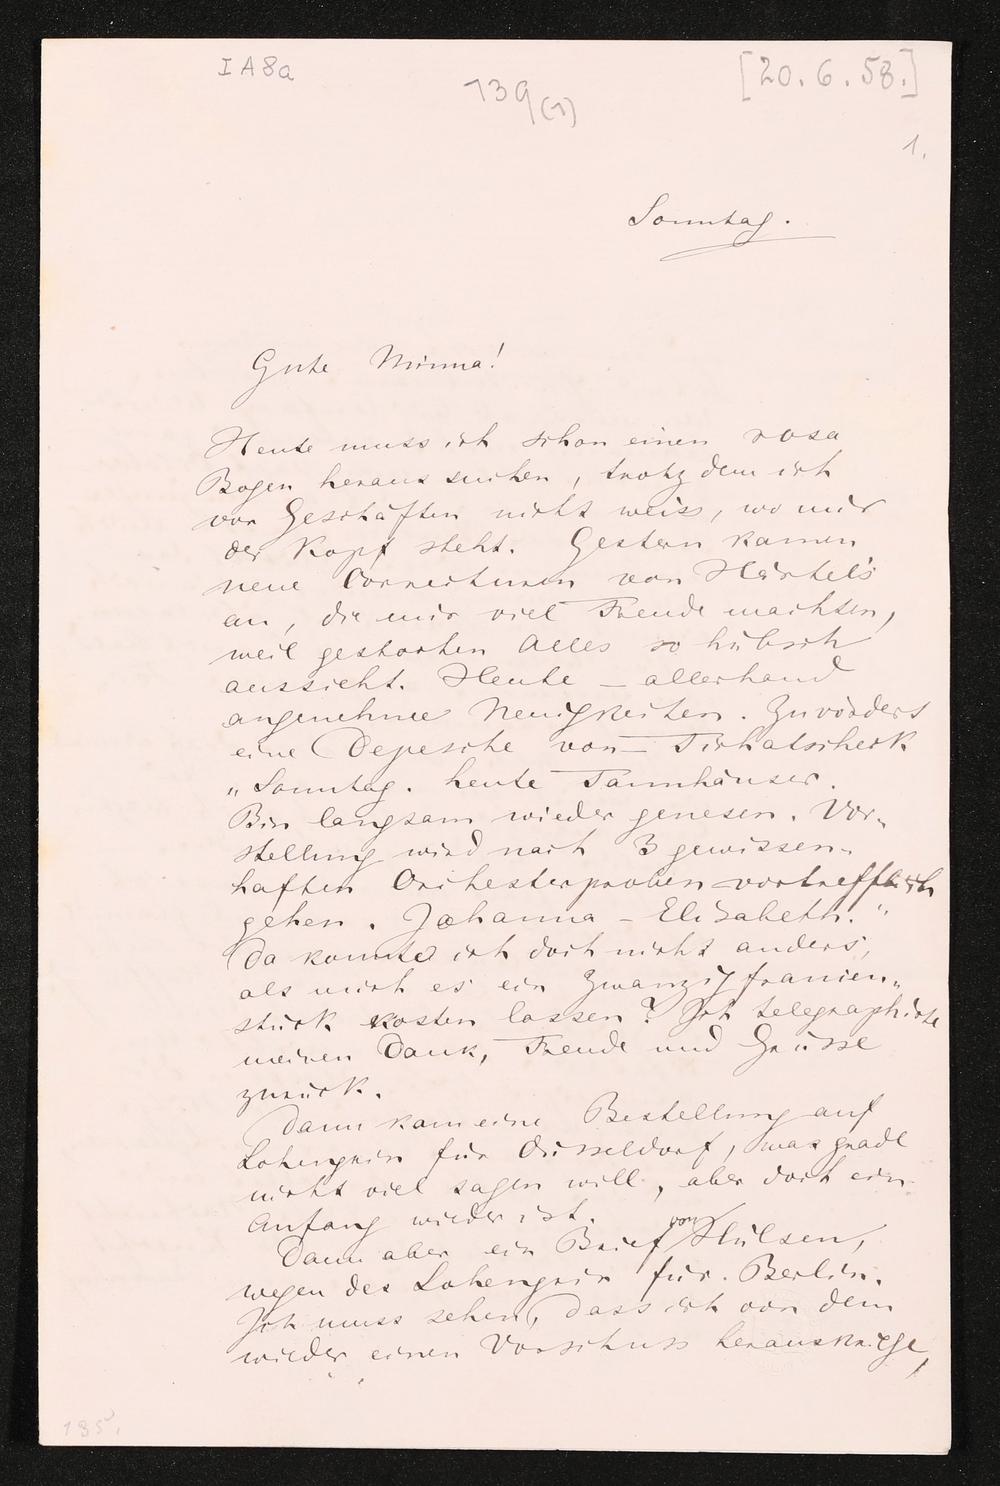 I A 8a
139(1)
[20. 6. 58.]
1.
Sonntag.
Gute Minna!
Heute muss ich schon einen rosa
Bogen heraus suchen, trotzdem ich
vor Geschäften nicht weiss, wo mir
der Kopf steht. Gestern kamen
neue Correcturen von Härtel's
an, die mir viel Freude machten,
weil gestochen Alles so hübsch
aussieht. Heute – allerhand
angenehme Neuigkeiten. Zuvörderst
eine Depesche von Tichatscheck
„Sonntag. heute Tannhäuser.
Bin langsam wieder genesen. Vor-
stellung wird nach 3 gewissen-
haften Orchesterproben vortrefflich
gehen. Johanna – Elisabeth."
Da konnte ich doch nicht anders,
als mich es ein Zwanzigfranken-
stück kosten lassen? Ich telegraphirte
meinen Dank, Freude und Grüsse
zurück.
Dann kam eine Bestellung auf
Lohengrin für Düsseldorf, was grade
nicht viel sagen will, aber doch ein
Anfang wieder ist.
Dann aber ein Brief von Hülsen,
wegen des Lohengrin für Berlin.
Ich muss sehen, dass ich von dem
wieder einen Vorschuss herauskriege,